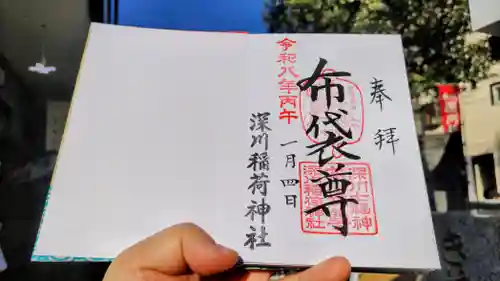 奉拝
布袋尊
深川七福神
深川稲荷神社
令和八年丙午
一月四日
深川稲荷神社